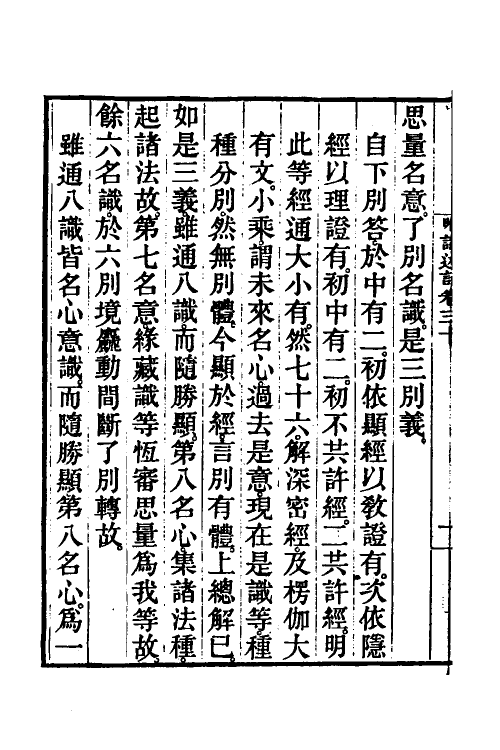 思量名意。了別名識。是三別義。
自下別答。於中有二。初依顯經以教證有。次依隱
經以理證有。初中有二。初不共許經。二共許經。明
此等經通大小有。然七十六。解深密經。及楞伽大
有文。小乘謂未來名心。過去是意。現在是識等。種
種分別。然無別體。今顯於經。言別有體。上總解已。
如是三義雖通八識。而隨勝顯。第八名心。集諸法種。
起諸法故。第七名意。緣藏識等恆審思量爲我等故。
餘六名識。於六別境麤動間斷了別轉故。
雖通八識皆名心意識。而隨勝顯第八名心。爲一